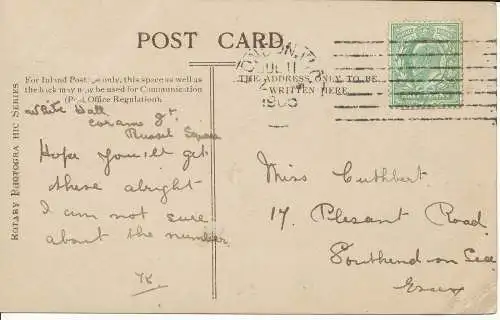 POST CARD.
LONDON. W.C
JUL 11
1905
For Inland Postage only, this space as well as
the back may now be used for Communication
(Post Office Regulation).
THE ADDRESS ONLY TO BE
WRITTEN HERE.
ROTARY PHOTOGRAPHIC SERIES
White Hall
Corams St
Russel Square
Hope you'll get
these alright
I am not sure
about the number.
Miss Cuthbert
17 Plesant Road
Southend on Sea
Essex